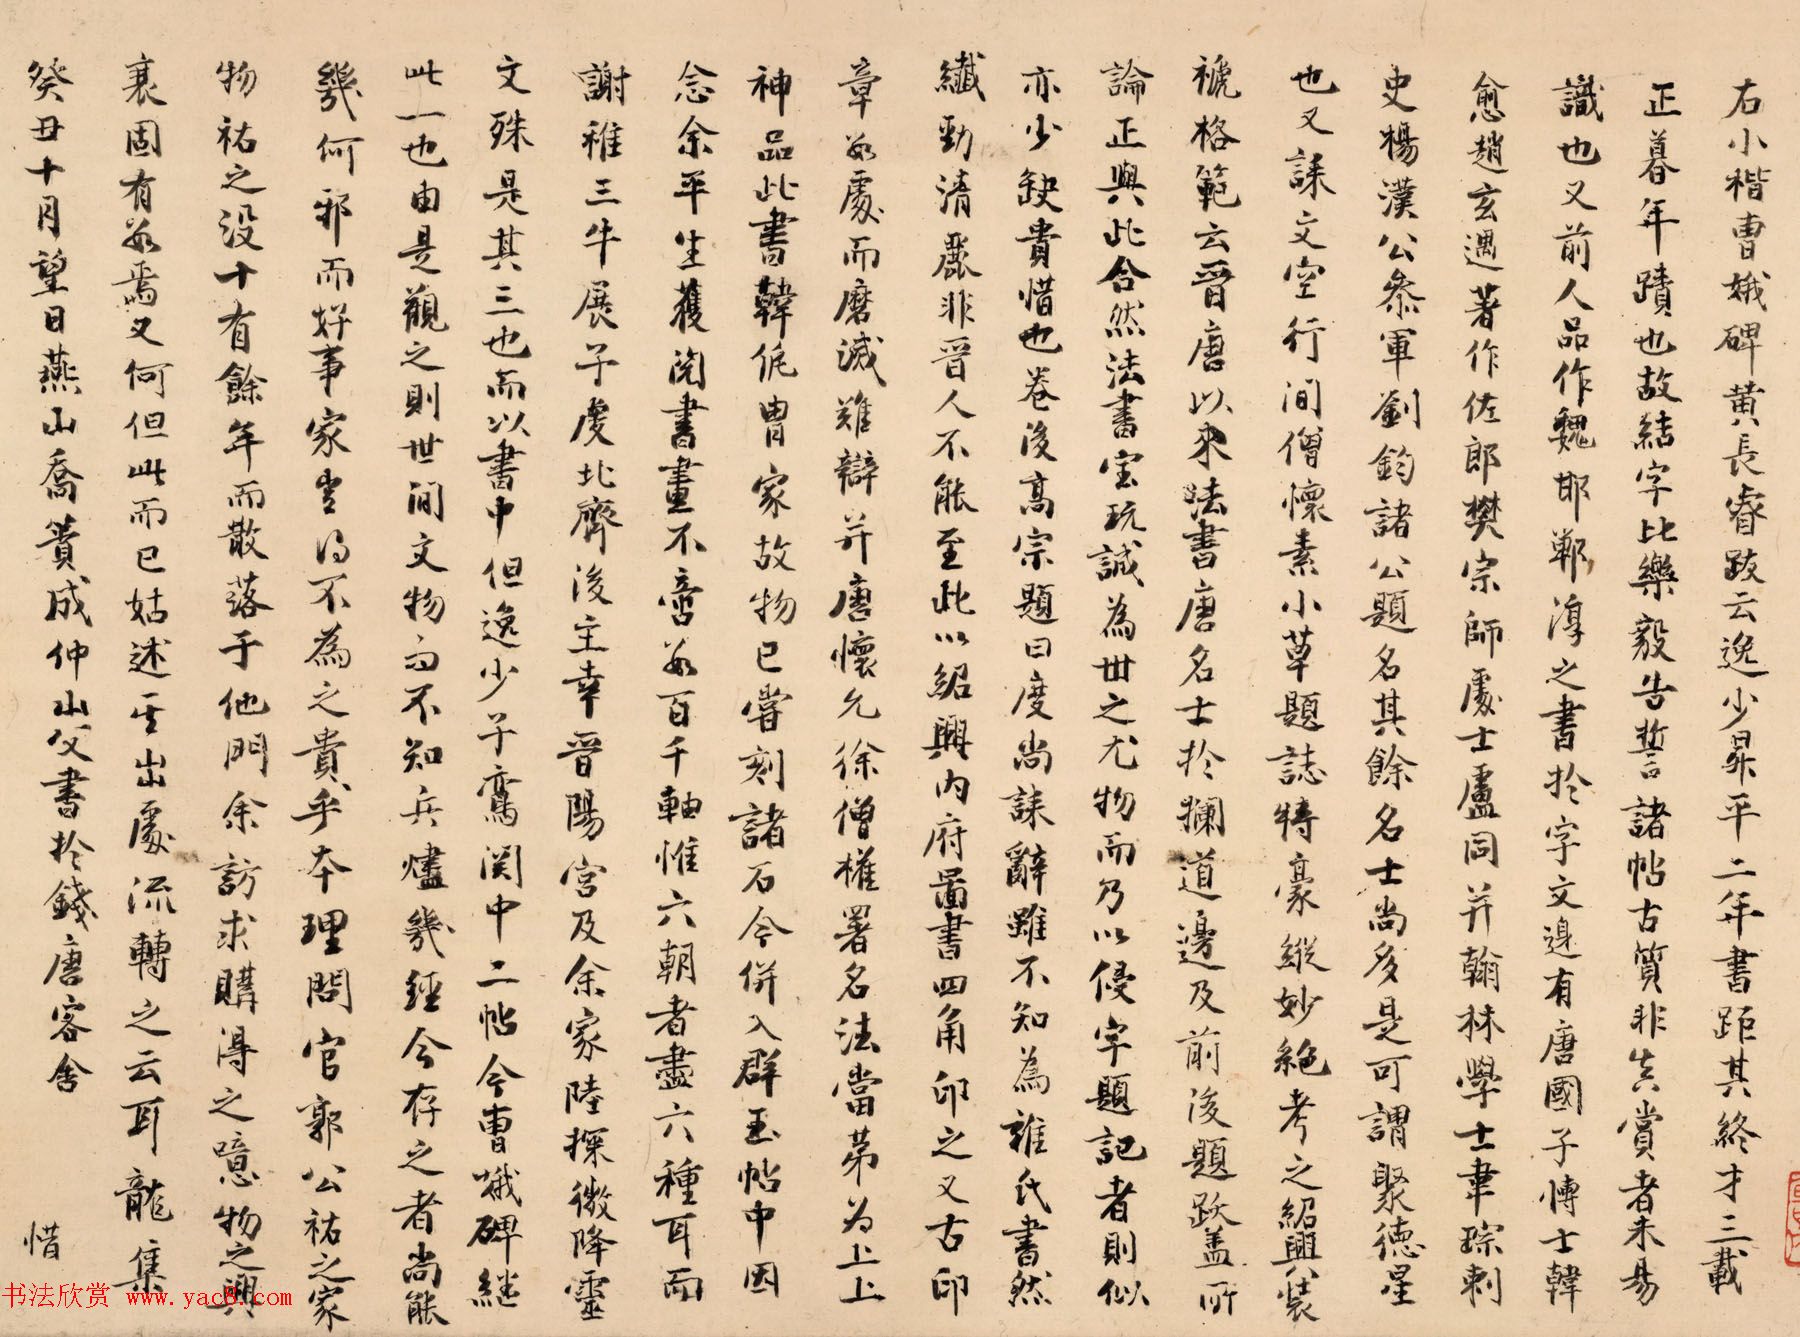 右小楷曹娥碑黄長睿跋云逸少昇平二年書距其終才三載
正暮年蹟也故結字比樂毅告誓諸帖古質非真賞者未易
識也又前人品作魏邯鄲淳之書於字文邊有唐國子博士韓
愈趙玄遇著作佐郎樊宗師處士盧同并翰林學士韋琮刺
史楊漢公參軍劉鈞諸公題名其餘名士尚多是可謂聚德星
也又誄文空行間僧懷素小草題誌特豪縱妙絶考之紹興裝
褫格範云晉唐以来法書唐名士於攔道邊及前後題跋盖所
論正與此合然法書宝玩誠為世之尤物而乃以侵字題記者則似
亦少缺貴惜也卷後高宗題曰度尚誄辭雖不知為誰氏書然
纎勁清麗非晉人不能至此以紹興内府啚書四角印之又古印
章数處而磨滅難辯并唐懷允徐僧權署名法當第为上上
神品此書韓侂胄家故物已嘗刻諸石今併入群玉帖中因
念余平生獲閲書畫不啻数百千軸惟六朝者盡六種耳而
謝稚三牛展子虔北齊後主幸晉陽宮及余家陸探微降靈
文殊是其三也而以書中但逸少干鸞関中二帖今曹娥碑继
此一也由是觀之則世間文物而不知兵燼幾經今存之者尚能
幾何邪而好事家豈得不為之貴乎本理問官郭公祐之家
物祐之没十有餘年而散落于他門余訪求購得之噫物之興
衰固有数焉又何但此而已姑述其出處流轉之云耳龍集
癸丑十月望日燕山喬簣成仲山父書於錢唐客舍
惜
书法欣赏 www.yac8.com